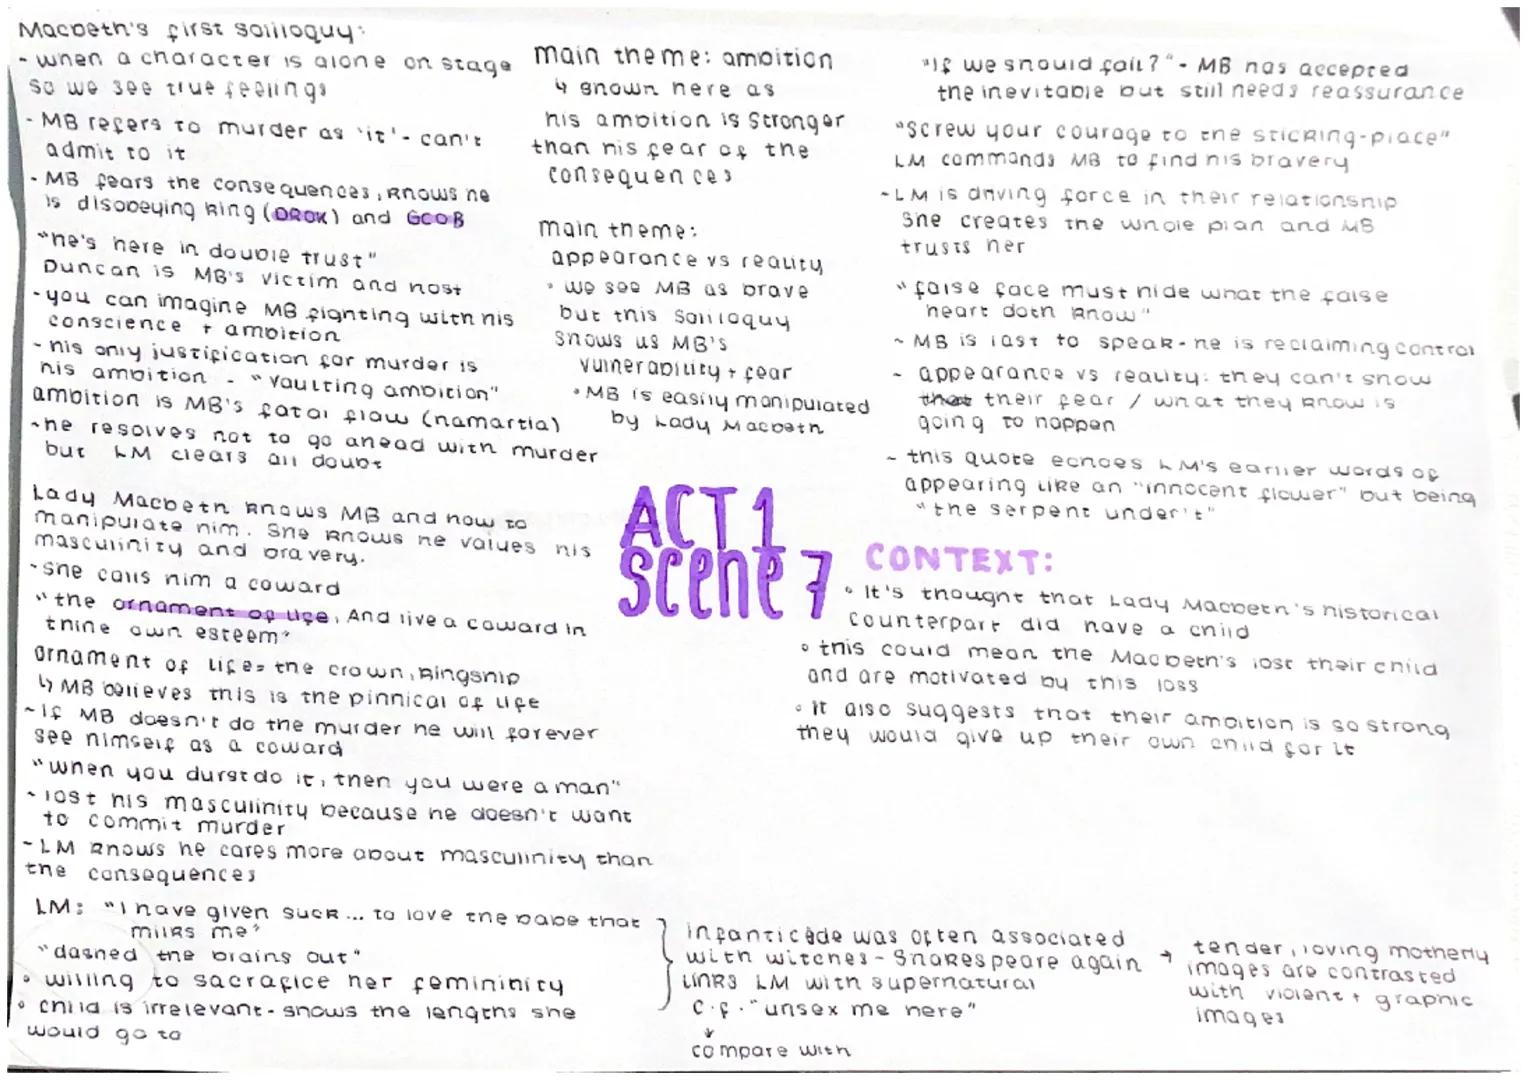 Macbeth's first soliloquy:
- when a character is alone on stage
so we see true feelings
- MB refers to murder as 'it' - can't
admit to it
- MB fears the consequences, knows he
is disobeying king (DROK) and GCOB
"he's here in double trust"
Duncan is MB's victim and host
- you can imagine MB fighting with his
conscience + ambition
- his only justification for murder is
his ambition - "vaulting ambition"
ambition is MB's fatal flaw (hamartia)
- he resolves not to go ahead with murder
but LM clears all doubt
Lady Macbeth knows MB and how to
manipulate him. She knows he values his
masculinity and bravery.
- she calls him a coward
"the ornament of life, And live a coward in
thine own esteem"
ornament of life = the crown, kingship
↳ MB believes this is the pinnical of life
- If MB doesn't do the murder he will forever
see himself as a coward
"when you durst do it, then you were a man"
- lost his masculinity because he doesn't want
to commit murder
- LM knows he cares more about masculinity than
the consequences
LM: "I have given suck ... to love the babe that
milks me"
"dashed the brains out"
• willing to sacrifice her femininity
• child is irrelevant - shows the lengths she
would go to
main theme: ambition
↳ shown here as
his ambition is stronger
than his fear of the
consequences
main theme:
appearance vs reality
• we see MB as brave
but this soliloquy
shows us MB's
vulnerability + fear
• MB is easily manipulated
by Lady Macbeth
ACT 1
Scene 7
"If we should fail?" - MB has accepted
the inevitable but still needs reassurance
"Screw your courage to the sticking-place"
LM commands MB to find his bravery
- LM is driving force in their relationship
She creates the whole plan and MB
trusts her
"false face must hide what the false
heart doth know"
- MB is last to speak - he is reclaiming control
- appearance vs reality: they can't show
that their fear / what they know is
going to happen
- this quote echoes LM's earlier words of
appearing like an "innocent flower" but being
"the serpent under't"
CONTEXT:
• It's thought that Lady Macbeth's historical
counterpart did have a child
• this could mean the Macbeth's lost their child
and are motivated by this loss
• It also suggests that their ambition is so strong
they would give up their own child for it
infanticide was often associated
with witches - Shakespeare again
links LM with supernatural
c.f. "unsex me here"
↓
compare with
→ tender, loving motherly
images are contrasted
with violent + graphic
images